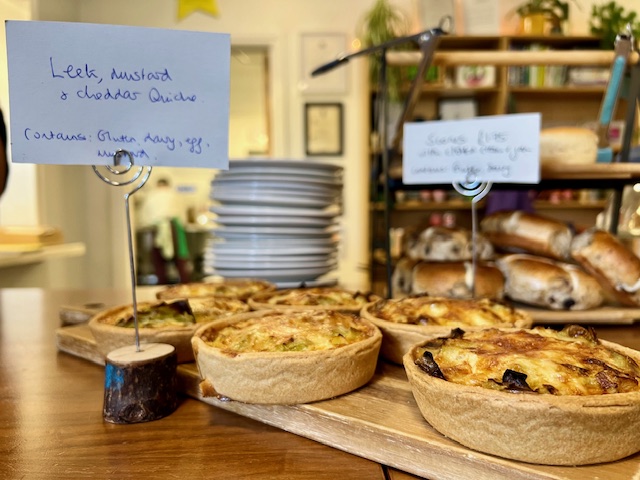 Leek, mustard
& cheddar Quiche.
Contains: Gluten, dairy, egg,
mustard.
Scones £1.75